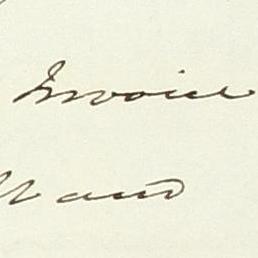 Invoice
and